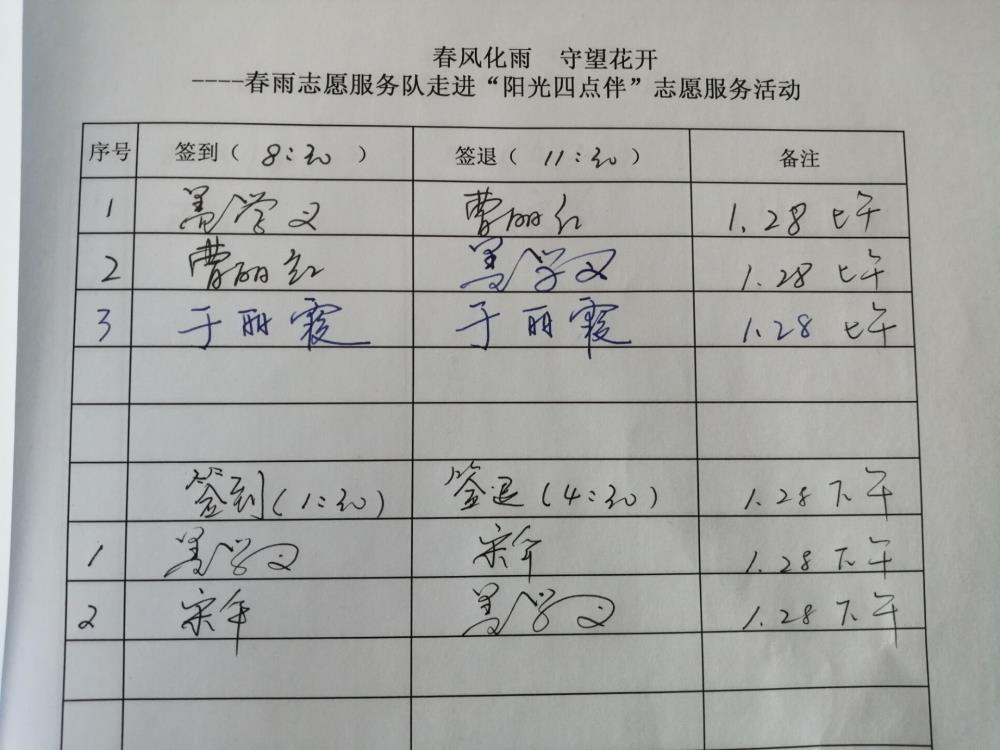 春风化雨 守望花开
----春雨志愿服务队走进“阳光四点伴”志愿服务活动
序号 签到( 8:30 ) 签退( 11:30 ) 备注
1 学文 曹丽红 1.28 上午
2 曹丽红 学文 1.28 上午
3 于丽霞 于丽霞 1.28 上午
签到(1:30) 签退(4:30) 1.28 下午
1 学文 宋军 1.28 下午
2 宋军 学文 1.28 下午